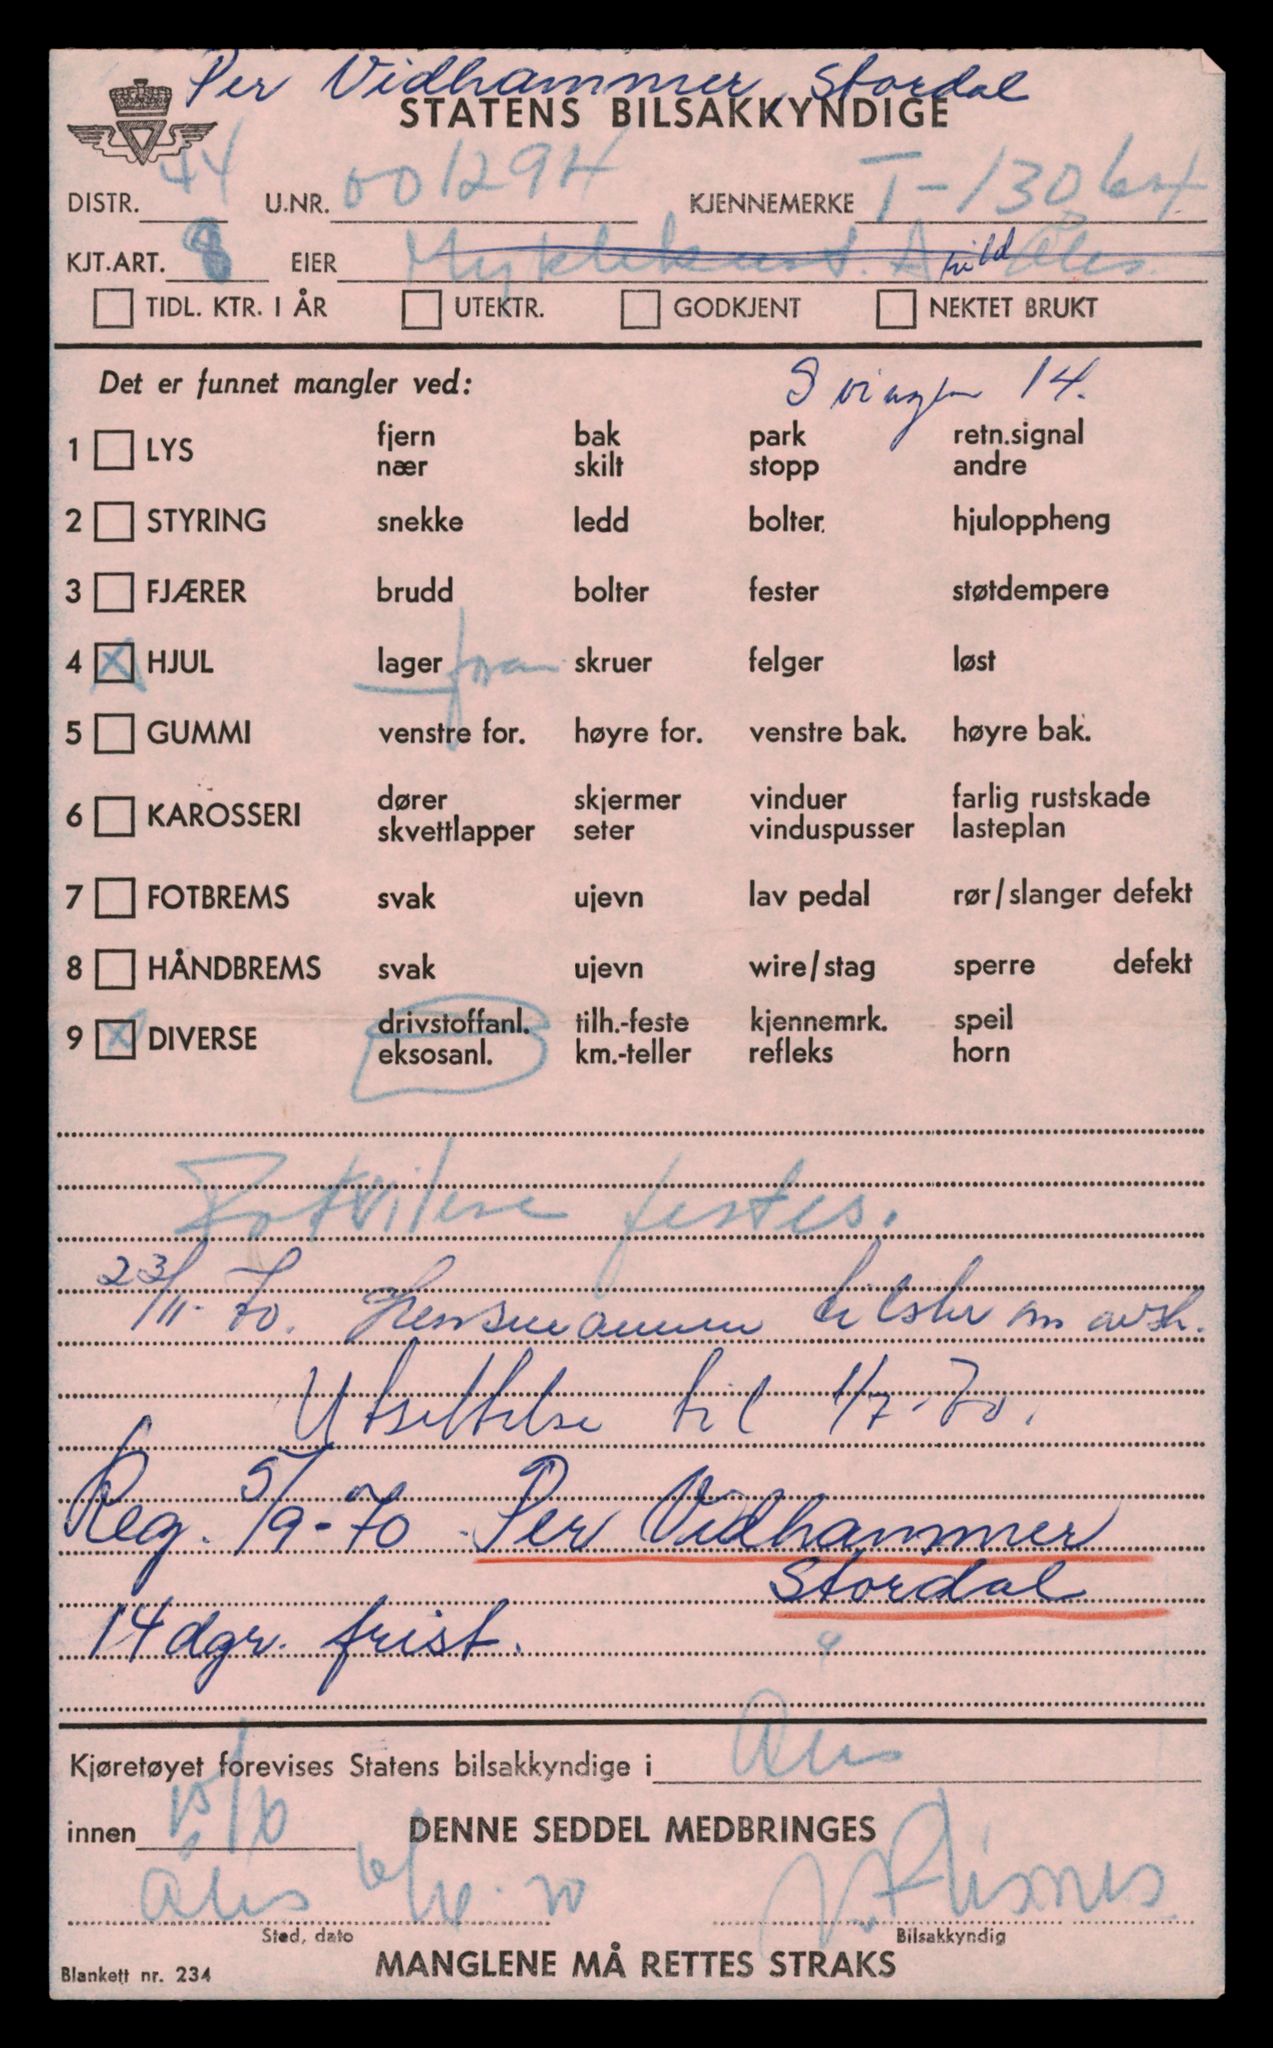 Per Vidhammer, Stordal
STATENS BILSAKKYNDIGE
DISTR. 44 U.NR. 001294 KJENNEMERKE T-13064
KJT.ART. 8 EIER Myklebust. Arild Åles.
TIDL. KTR. I ÅR UTEKTR. GODKJENT NEKTET BRUKT
Det er funnet mangler ved: 14.
1 LYS fjern bak park retn.signal
nær skilt stopp andre
2 STYRING snekke ledd bolter. hjuloppheng
3 FJÆRER brudd bolter fester støtdempere
4 X HJUL lager foran skruer felger løst
5 GUMMI venstre for. høyre for. venstre bak. høyre bak.
6 KAROSSERI dører skjermer vinduer farlig rustskade
skvettlapper seter vinduspusser lasteplan
7 FOTBREMS svak ujevn lav pedal rør/slanger defekt
8 HÅNDBREMS svak ujevn wire/stag sperre defekt
9 X DIVERSE drivstoffanl. tilh.-feste kjennemrk. speil
eksosanl. km.-teller refleks horn
Fotvilere festes.
23/11-70. Lensmannen tilskr om avsk.
Utsettelse til 1/7-70.
Reg. 5/9-70 Per Vidhammer
Stordal
14 dgr. frist.
Kjøretøyet forevises Statens bilsakkyndige i Åles
innen 15/6 DENNE SEDDEL MEDBRINGES
Åles
Sted, dato Bilsakkyndig
Blankett nr. 234 MANGLENE MÅ RETTES STRAKS